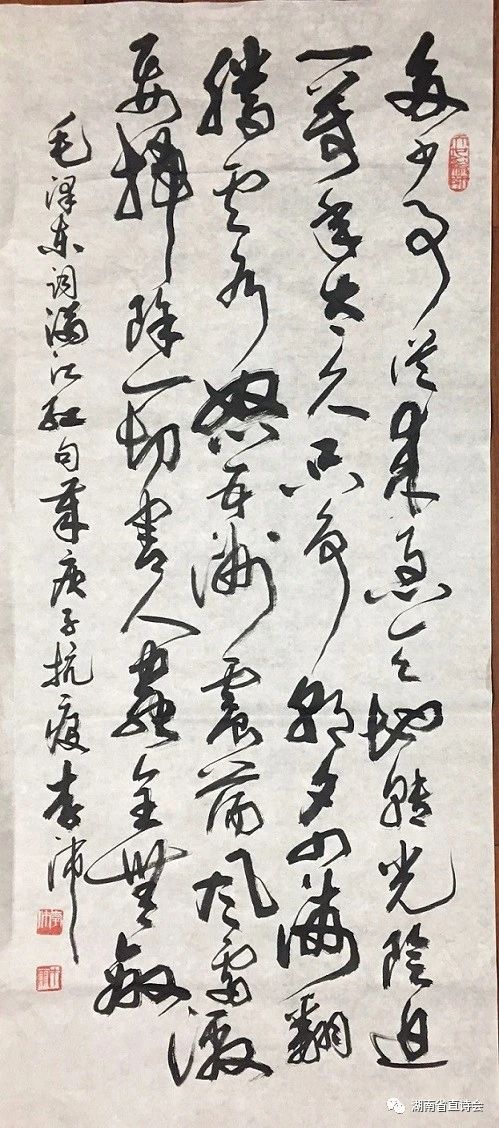 多少事從来急天地转光陰迫
一萬年太久只争朝夕四海翻
腾云水怒五洲震荡风雷激
要掃除一切害人蟲全無敵
毛泽东词满江红句庚子抗疫李沛
湖南省直诗会